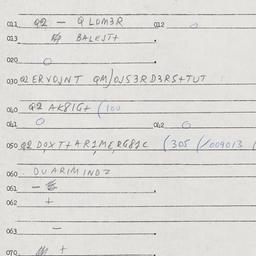 011 Q2 — QLOM3R 012 0
013 BALEST+
020 0
030 Q2ERVOJNT QM)OJS3RD3RS+TUT
040 Q2 AK8IG+ (100
041 0 042 0
050 Q2 DOXT+AR1MERG81C (305 (/009013 (
060 DUARIMINDZ
061 —
062 +
063 —
070 +